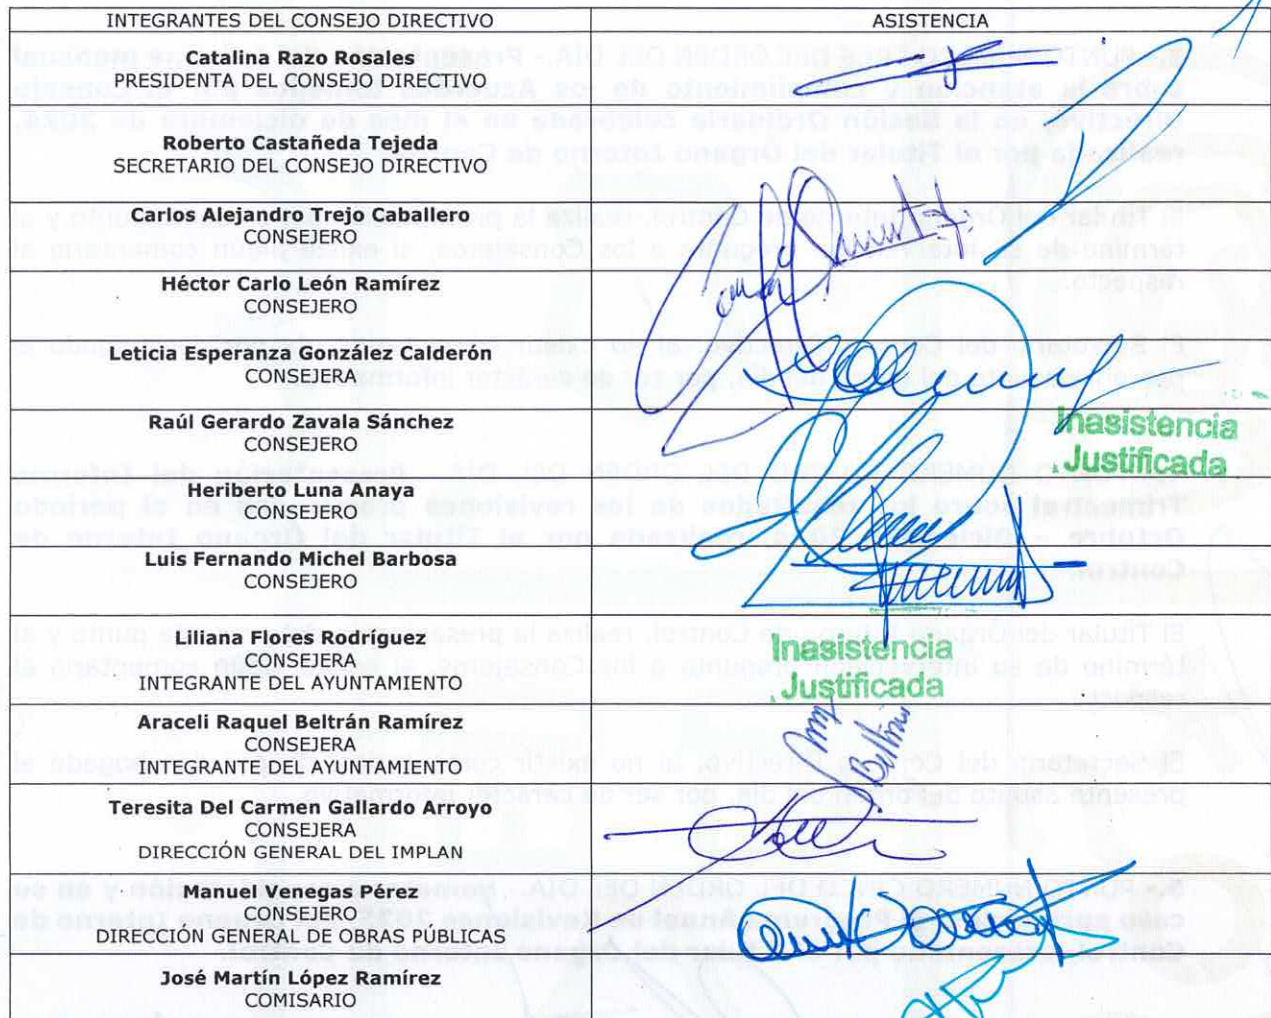 INTEGRANTES DEL CONSEJO DIRECTIVO
ASISTENCIA
Catalina Razo Rosales
PRESIDENTA DEL CONSEJO DIRECTIVO
Roberto Castañeda Tejeda
SECRETARIO DEL CONSEJO DIRECTIVO
Carlos Alejandro Trejo Caballero
CONSEJERO
Héctor Carlo León Ramírez
CONSEJERO
Leticia Esperanza González Calderón
CONSEJERA
Raúl Gerardo Zavala Sánchez
CONSEJERO
Inasistencia
Justificada
Heriberto Luna Anaya
CONSEJERO
Luis Fernando Michel Barbosa
CONSEJERO
Liliana Flores Rodríguez
CONSEJERA
INTEGRANTE DEL AYUNTAMIENTO
Inasistencia
Justificada
Araceli Raquel Beltrán Ramírez
CONSEJERA
INTEGRANTE DEL AYUNTAMIENTO
Teresita Del Carmen Gallardo Arroyo
CONSEJERA
DIRECCIÓN GENERAL DEL IMPLAN
Manuel Venegas Pérez
CONSEJERO
DIRECCIÓN GENERAL DE OBRAS PÚBLICAS
José Martín López Ramírez
COMISARIO